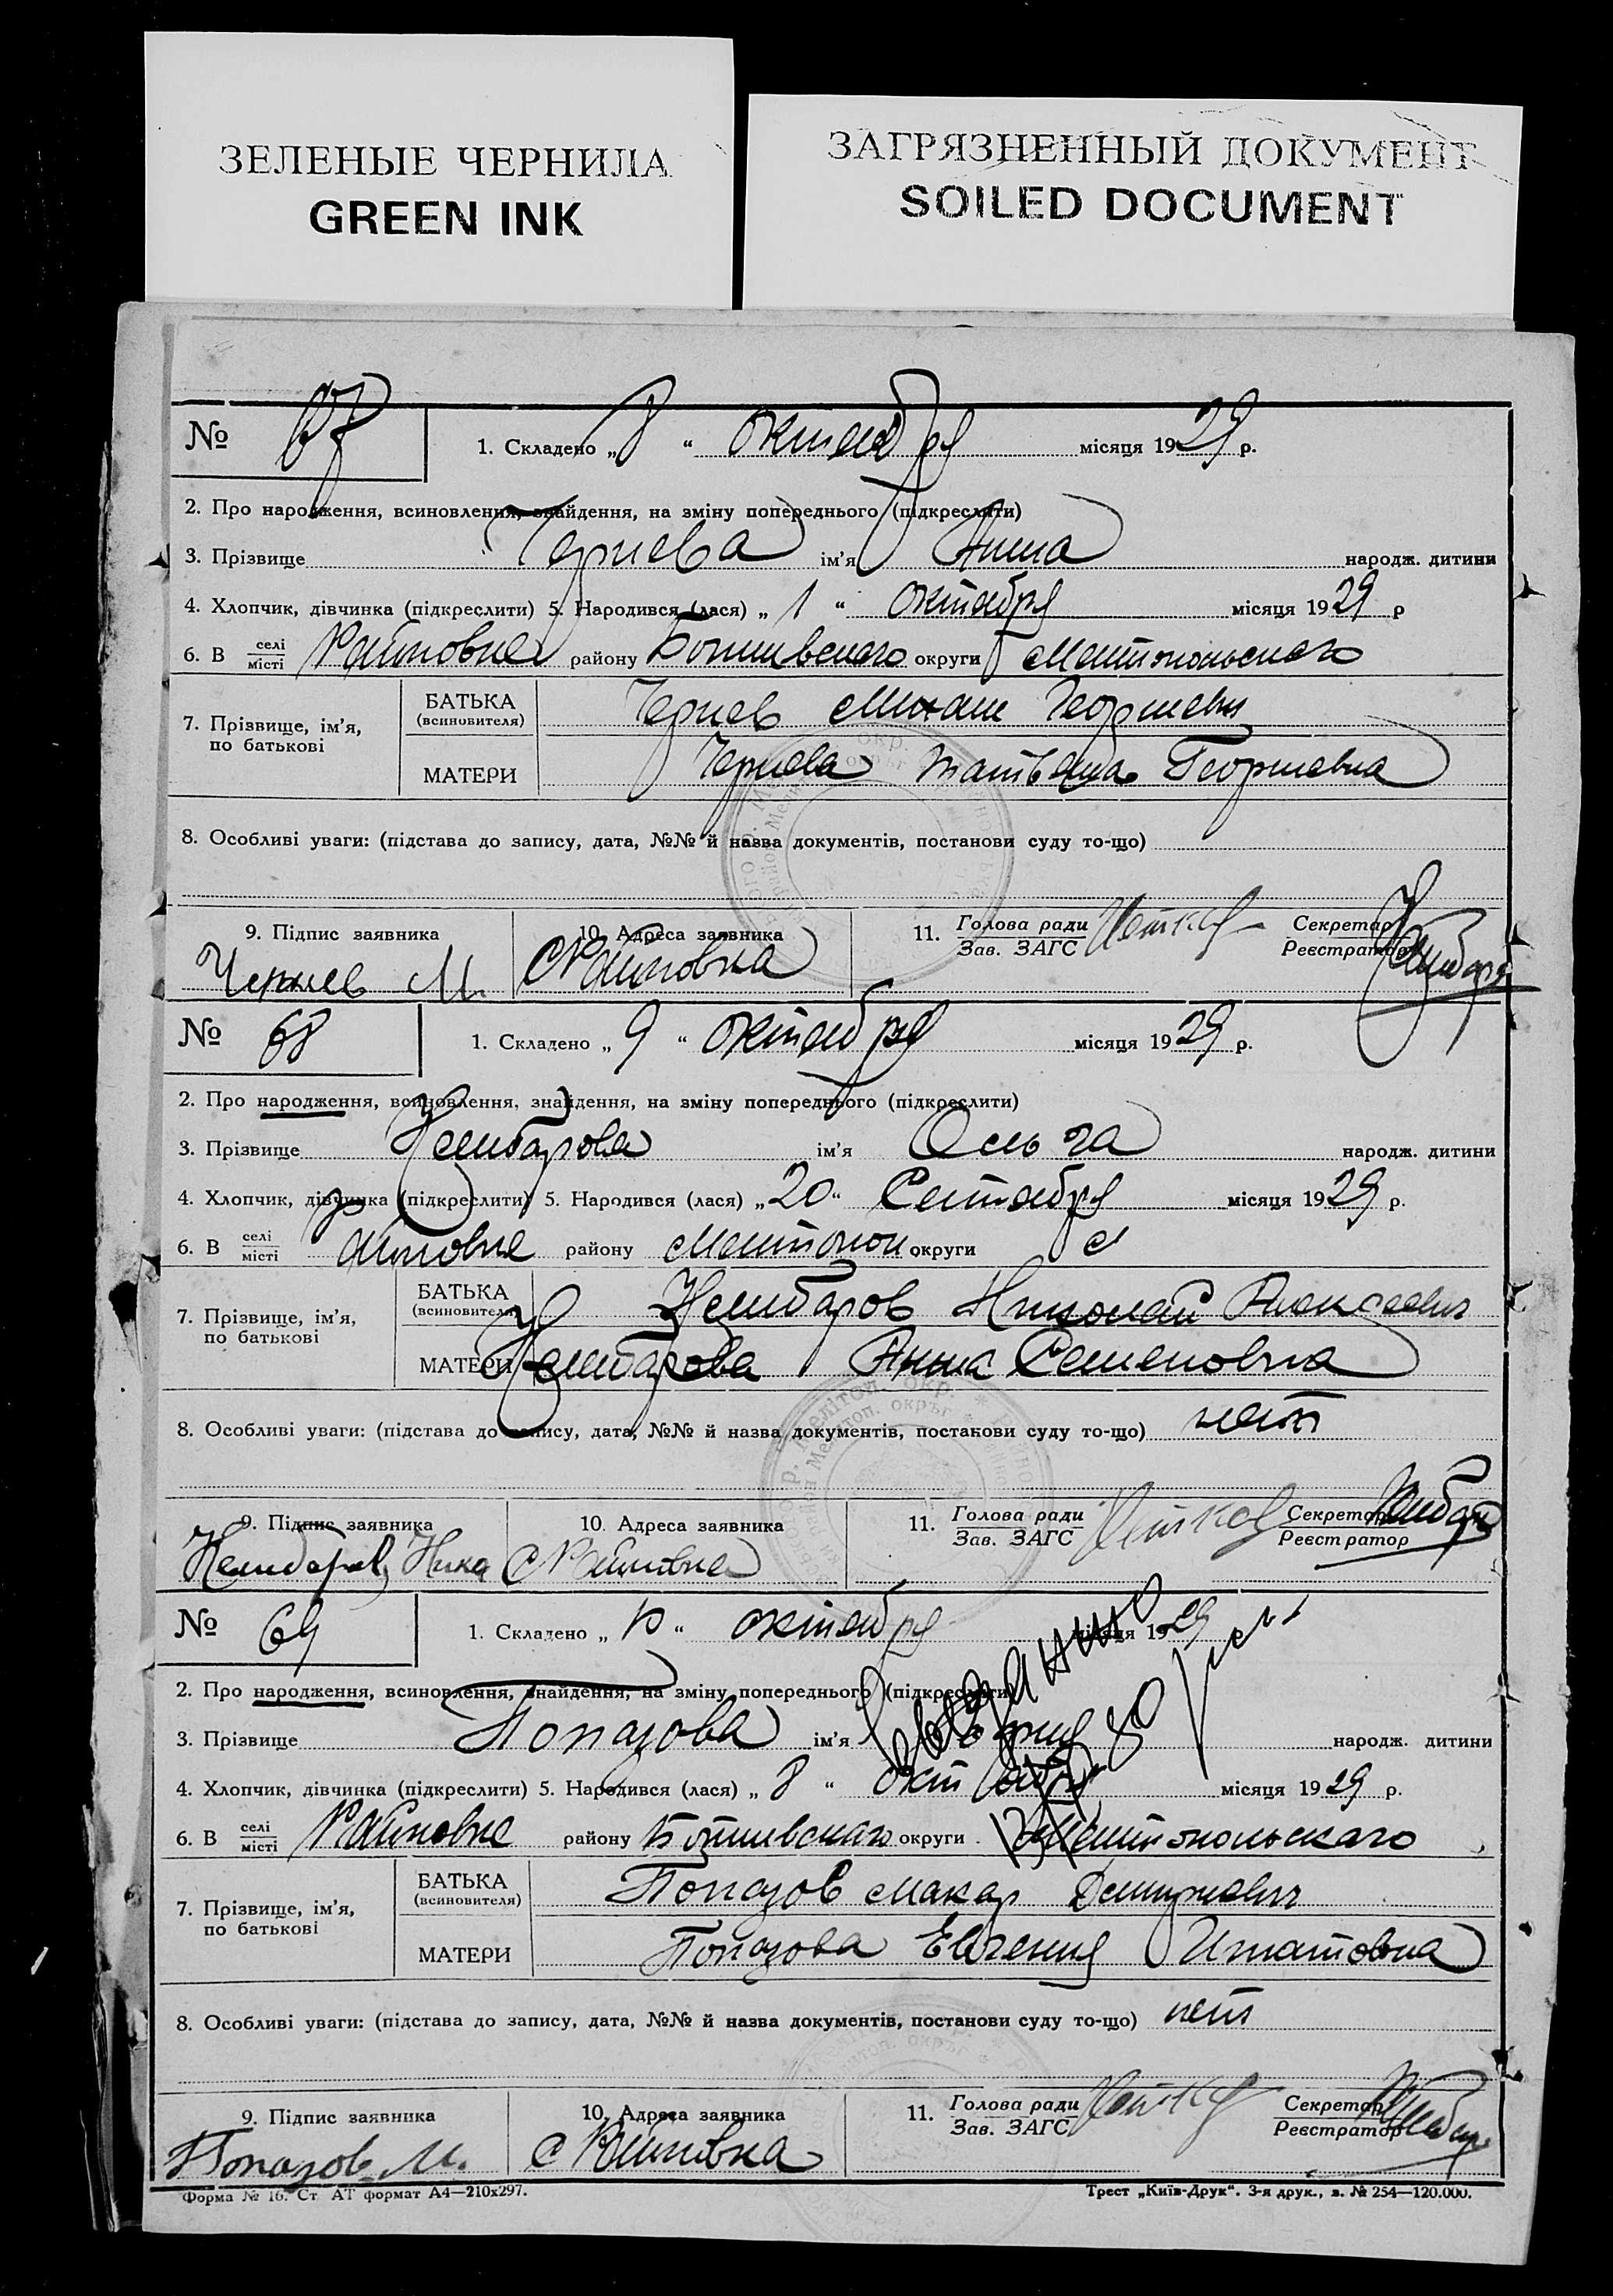 ЗЕЛЕНЫЕ ЧЕРНИЛА
GREEN INK
ЗАГРЯЗНЕННЫЙ ДОКУМЕНТ
SOILED DOCUMENT
№ 67 1. Складено „8“ октября місяця 1929 р.
2. Про народження, всиновлення, знайдення, на зміну попереднього (підкреслити)
3. Прізвище Чернева ім'я Анна народж. дитини
4. Хлопчик, дівчинка (підкреслити) 5. Народився (лася) „1“ октября місяця 1929 р
6. В селі/місті Райновке району округи Мелитопольскаго
7. Прізвище, ім'я, по батькові БАТЬКА (всиновителя) Чернев Михаил Георгиевич
МАТЕРИ Чернева Татьяна Георгиевна
8. Особливі уваги: (підстава до запису, дата, №№ й назва документів, постанови суду то-що)
9. Підпис заявника 10. Адреса заявника 11. Голова ради/Зав. ЗАГС Секретар/Реєстратор
Чернев М. С Райновка
№ 68 1. Складено „9“ октября місяця 1929 р.
2. Про народження, всиновлення, знайдення, на зміну попереднього (підкреслити)
3. Прізвище ім'я Ольга народж. дитини
4. Хлопчик, дівчинка (підкреслити) 5. Народився (лася) „20“ Сентября місяця 1929 р.
6. В селі/місті району Мелитопол округи
7. Прізвище, ім'я, по батькові БАТЬКА (всиновителя) Николай Алексеевич
МАТЕРИ Анна Семеновна
8. Особливі уваги: (підстава до запису, дата, №№ й назва документів, постанови суду то-що) нет
9. Підпис заявника 10. Адреса заявника 11. Голова ради/Зав. ЗАГС Секретар/Реєстратор
С Райновка
№ 69 1. Складено „10“ октября місяця 1929
2. Про народження, всиновлення, знайдення, на зміну попереднього (підкреслити)
3. Прізвище Попазова ім'я народж. дитини
4. Хлопчик, дівчинка (підкреслити) 5. Народився (лася) „8“ октября місяця 1929 р.
6. В селі/місті Райновке району округи Мелитопольскаго
7. Прізвище, ім'я, по батькові БАТЬКА (всиновителя) Попазов Макар
МАТЕРИ Попазова Евгения Игнатовна
8. Особливі уваги: (підстава до запису, дата, №№ й назва документів, постанови суду то-що) нет
9. Підпис заявника 10. Адреса заявника 11. Голова ради/Зав. ЗАГС Секретар/Реєстратор
Попазов М. С Райновка
Форма № 16. Ст. АТ формат А4—210x297. Трест „Київ-Друк“. 3-я друк., з. № 254—120.000.